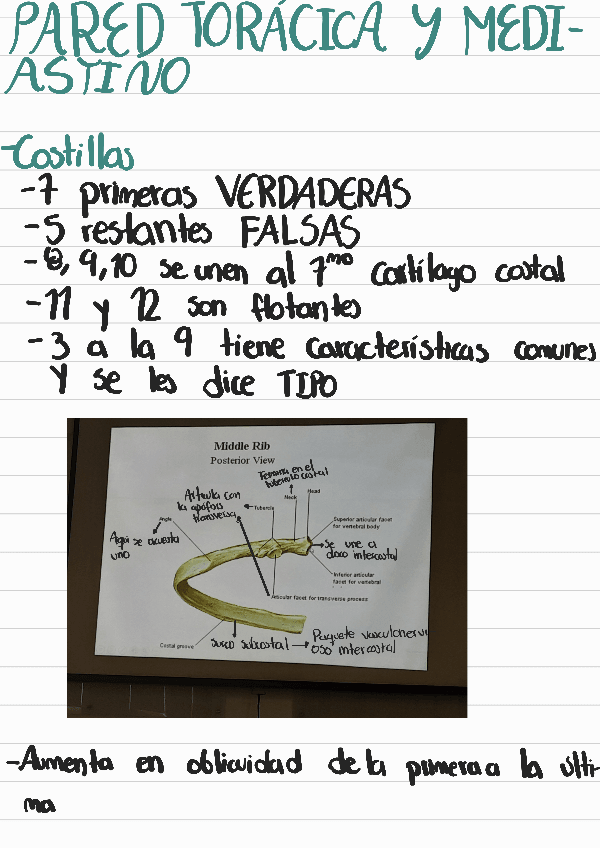 PARED TORÁCICA Y MEDI-
ASTINO
-Costillas
-7 primeras VERDADERAS
-5 restantes FALSAS
-8, 9, 10 se unen al 7mo cartílago costal
-11 y 12 son flotantes
-3 a la 9 tiene características comunes
y se les dice TIPO
Middle Rib
Posterior View
Termina en el
tuberculo costal
Articula con
la apófisis
transversa
Head
Neck
Tubercle
Angle
Aqui se acuesta
uno
Superior articular facet
for vertebral body
Se une a
disco intercostal
Inferior articular
facet for vertebral
Articular facet for transverse process
Costal groove
Surco subcostal
Paquete vasculonervi
oso intercostal
-Aumenta en oblicuidad de la primera a la últi-
ma